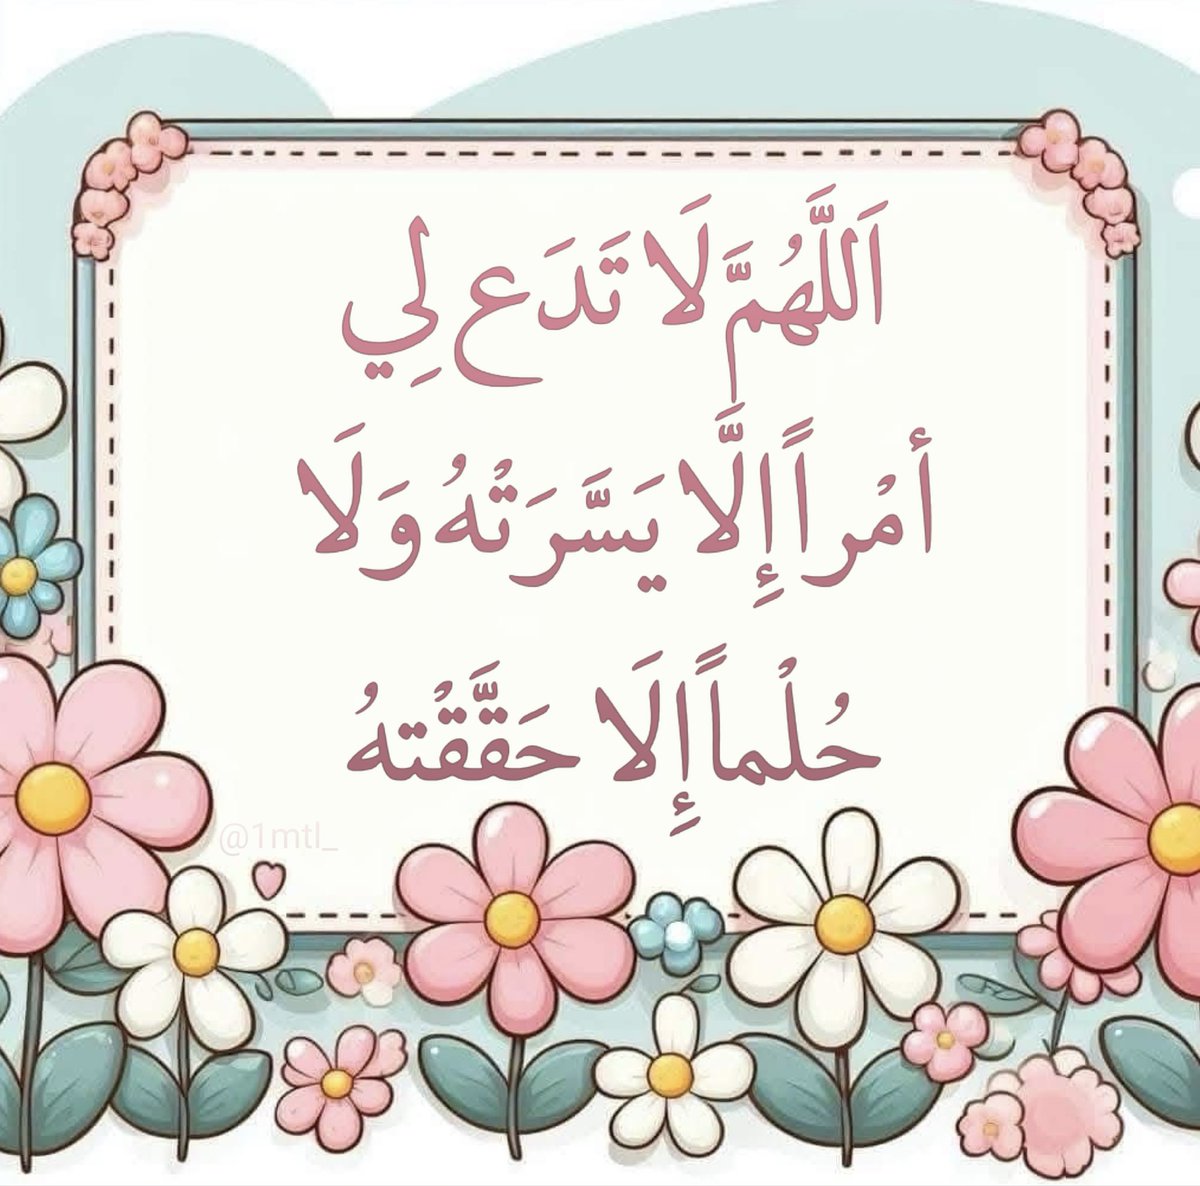 اَللَّهُمَّ لَا تَدَع لِي
أمْراً إِلَّا يَسَّرَتْهُ وَلَا
حُلْماً إِلَا حَقَّقْتهُ
@1mtl_